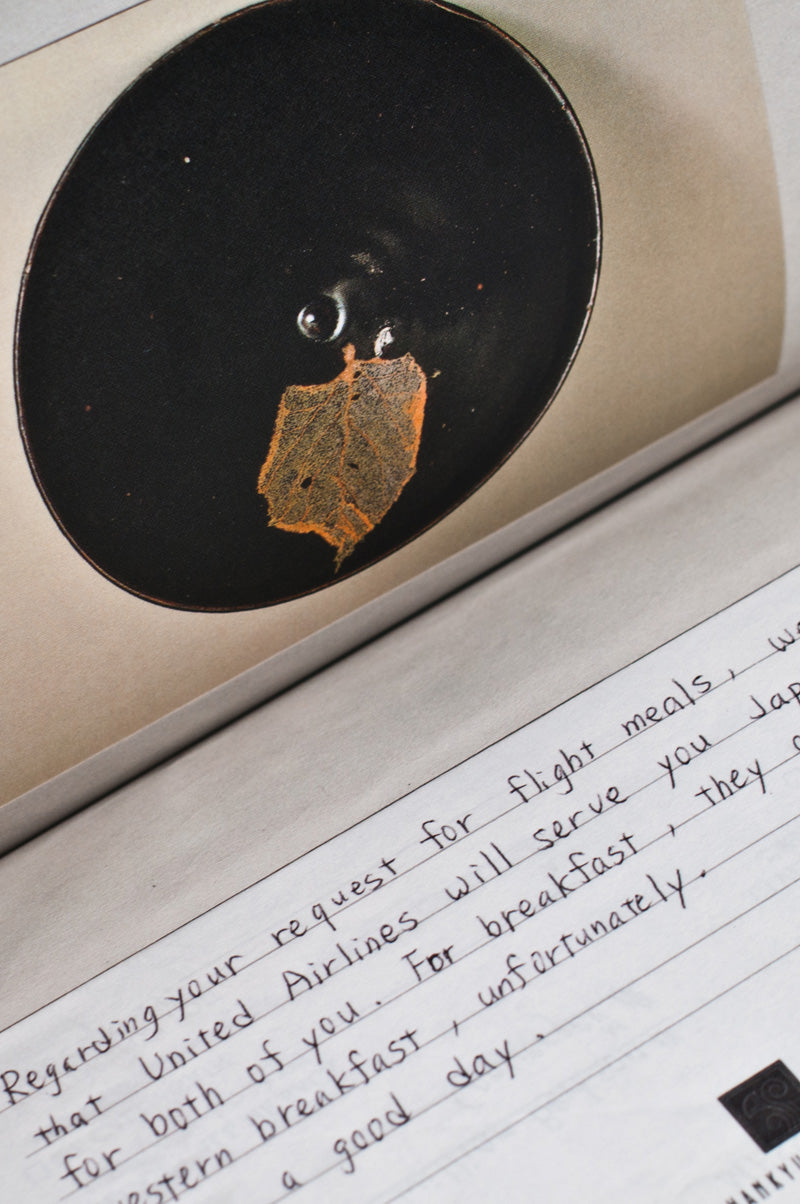 Regarding your request for flight meals,
that United Airlines will serve you Jap
for both of you. For breakfast, they
western breakfast, unfortunately.
a good day.